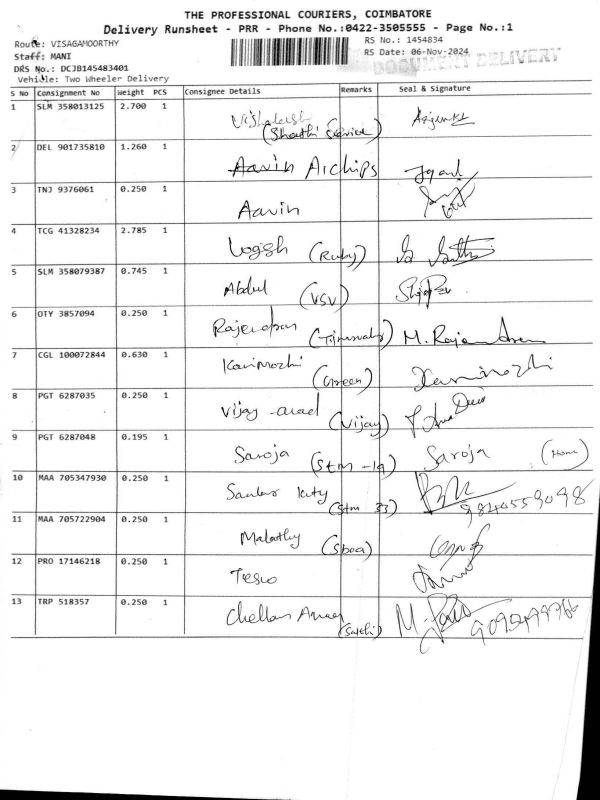 THE PROFESSIONAL COURIERS, COIMBATORE
Delivery Runsheet - PRR - Phone No.:0422-3505555 - Page No.:1
Route: VISAGAMOORTHY
RS No.: 1454834
Staff: MANI
RS Date: 06-Nov-2024
DRS No.: DCJB145483401
DOCUMENT DELIVERY
Vehicle: Two Wheeler Delivery
S No Consignment No Weight PCS Consignee Details Remarks Seal & Signature
1 SLM 358013125 2.700 1
(Shathi Service)
2 DEL 901735810 1.260 1 Aavin Archips
3 TNJ 9376061 0.250 1 Aavin
4 TCG 41328234 2.785 1 Logish (Ruby)
5 SLM 358079387 0.745 1 Abdul (VSV)
6 OTY 3857094 0.250 1 M. Rajendran
7 CGL 100072844 0.630 1 Kanimozhi (Green) Kanimozhi
8 PGT 6287035 0.250 1 Vijay (Vijay)
9 PGT 6287048 0.195 1 Saroja (Stm -19) Saroja (Home)
10 MAA 705347930 0.250 1 (Stm 33) 9840559098
11 MAA 705722904 0.250 1 Malathy (Sboa)
12 PRO 17146218 0.250 1 Tesco
13 TRP 518357 0.250 1 (Sakthi)